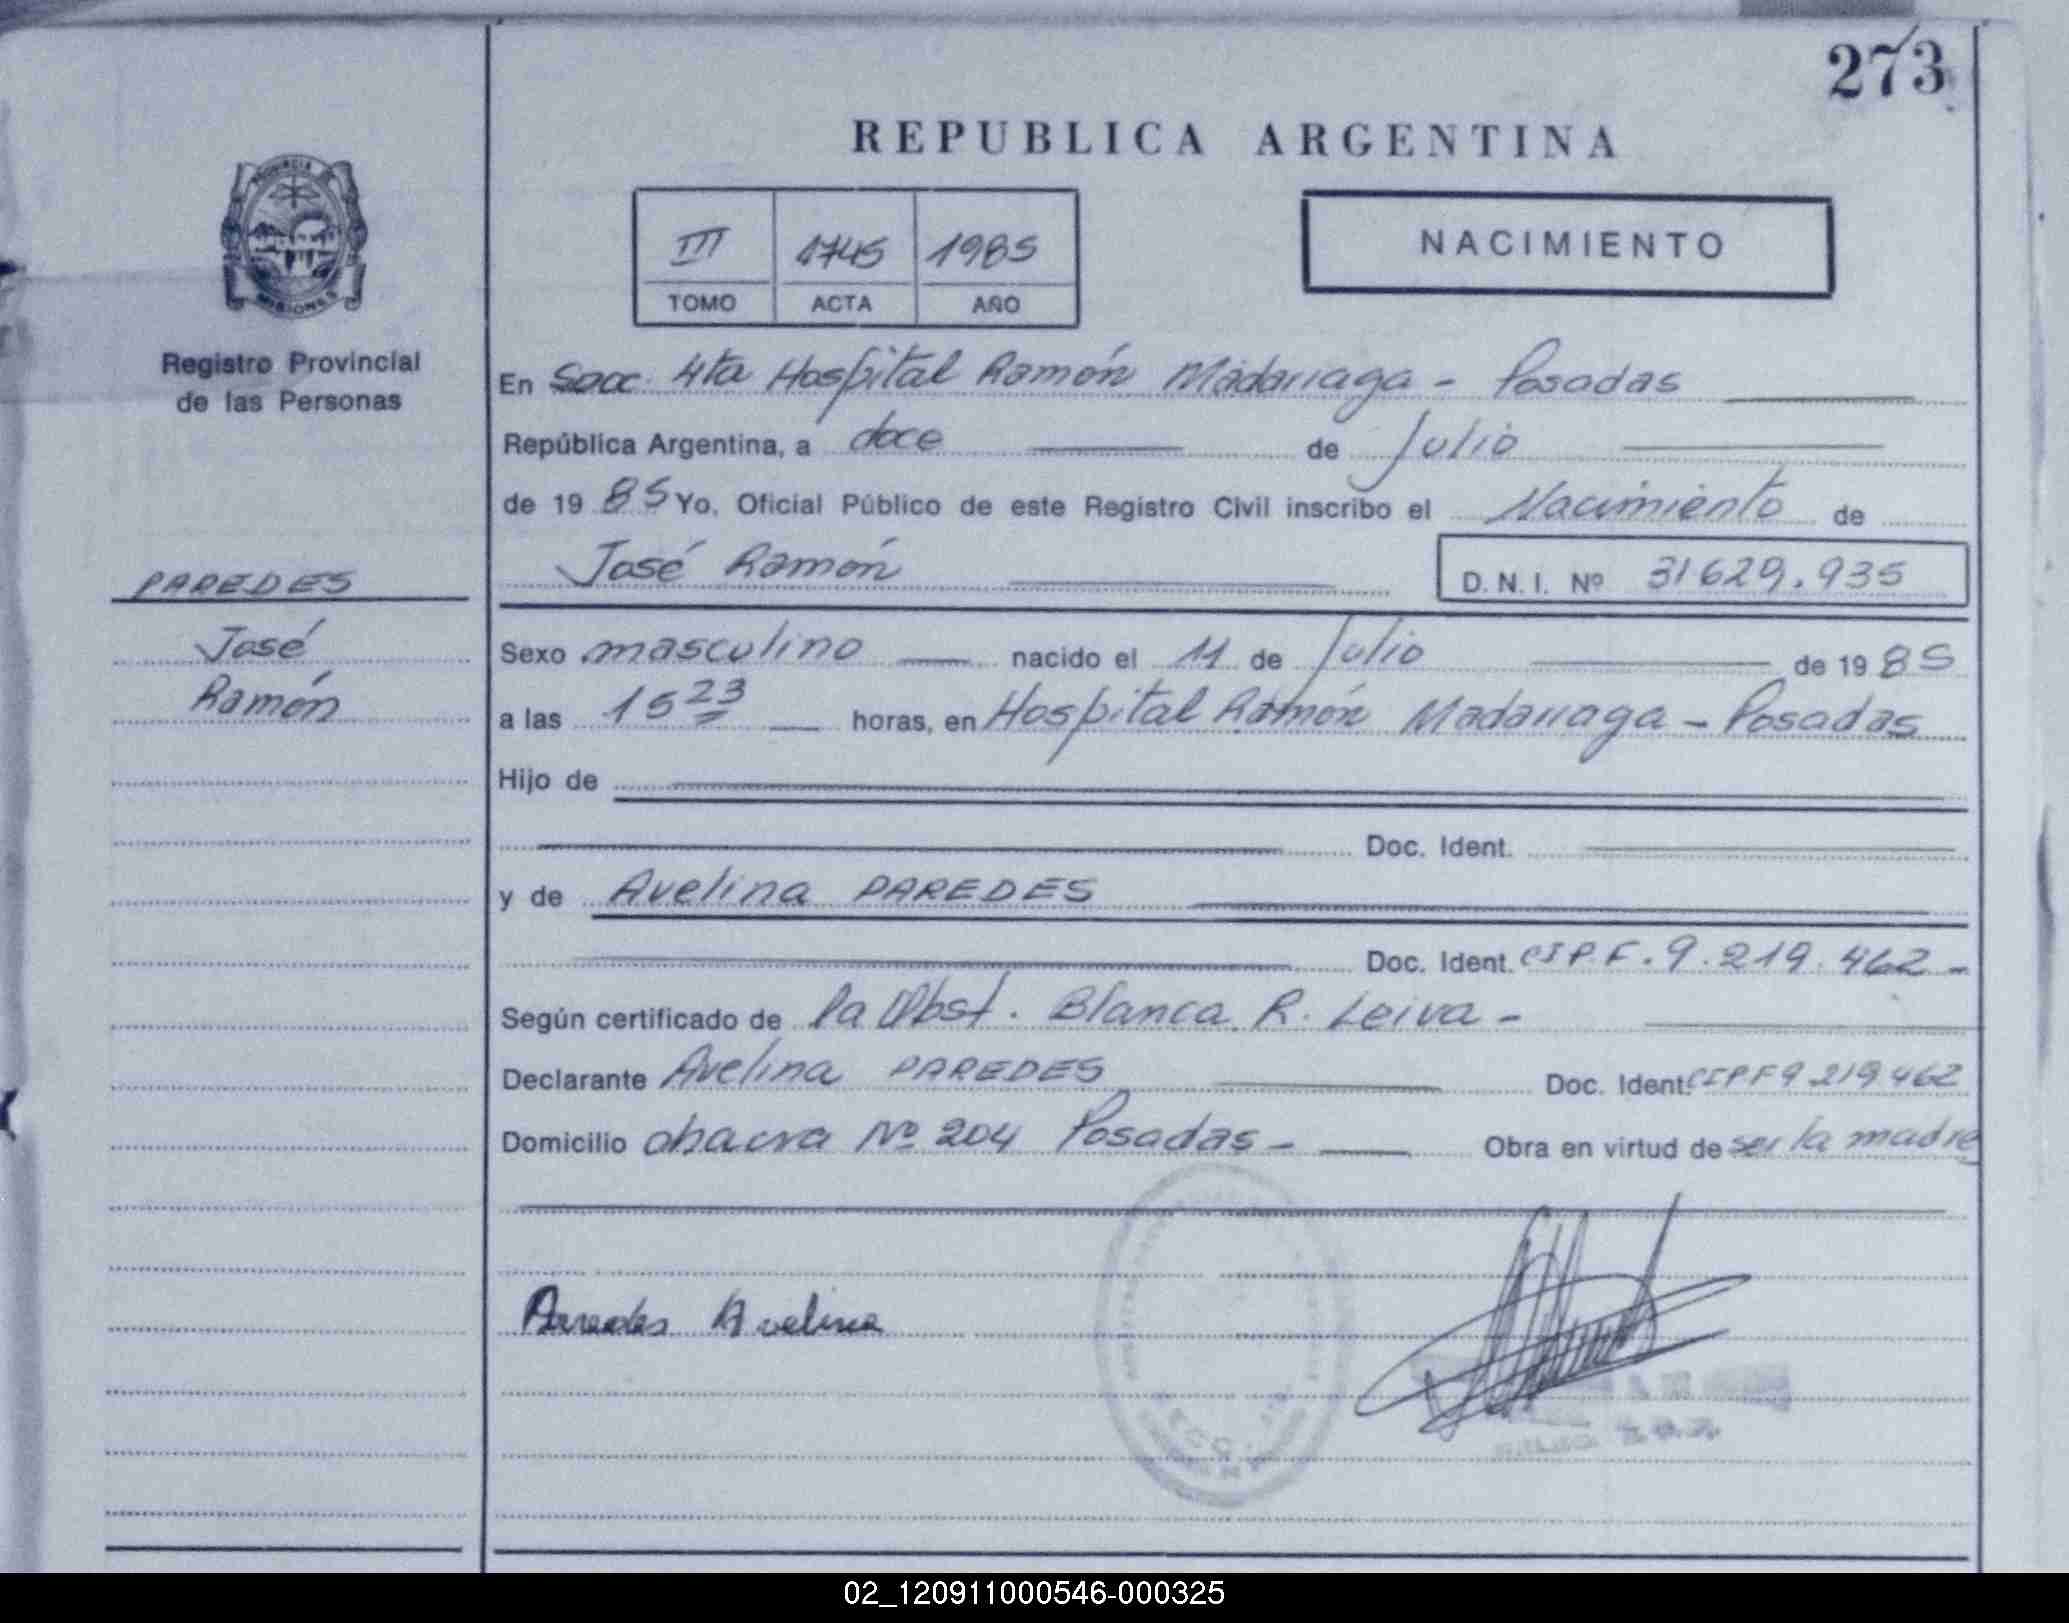 273
REPUBLICA ARGENTINA
PROVINCIA DE
MISIONES
III 1745 1985
TOMO ACTA AÑO
NACIMIENTO
Registro Provincial
de las Personas
En Secc. 4ta Hospital Ramón Madariaga - Posadas
República Argentina, a doce de Julio
de 1985 Yo, Oficial Público de este Registro Civil inscribo el Nacimiento de
José Ramón D. N. I. Nº 31629.935
PAREDES
José
Ramón
Sexo masculino nacido el 11 de Julio de 1985
a las 15 23 horas, en Hospital Ramón Madariaga - Posadas
Hijo de
Doc. Ident.
y de Avelina PAREDES
Doc. Ident. CIPF. 9.219.462 -
Según certificado de la Obst. Blanca R. Leiva -
Declarante Avelina PAREDES Doc. Ident. CIPF 9 219 462
Domicilio chacra Nº 204 Posadas - Obra en virtud de ser la madre
Paredes Avelina
02_120911000546-000325